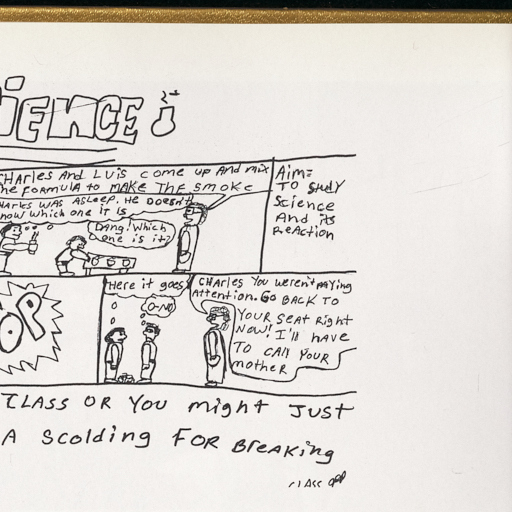 IENCE
CHARLES AND LUIS COME UP AND MIX
THE FORMULA TO MAKE THE SMOKE
CHARLES WAS ASLEEP. HE DOESN'T
KNOW WHICH ONE IT IS
DANG! WHICH
ONE IS IT?
AIM:
TO STUDY
SCIENCE
AND ITS
REACTION
OP
HERE IT GOES
O-NO
CHARLES YOU WEREN'T PAYING
ATTENTION. GO BACK TO
YOUR SEAT RIGHT
NOW! I'll HAVE
TO CALL YOUR
MOTHER
CLASS OR YOU might JUST
A SCOLDING FOR BREAKING
CLASS